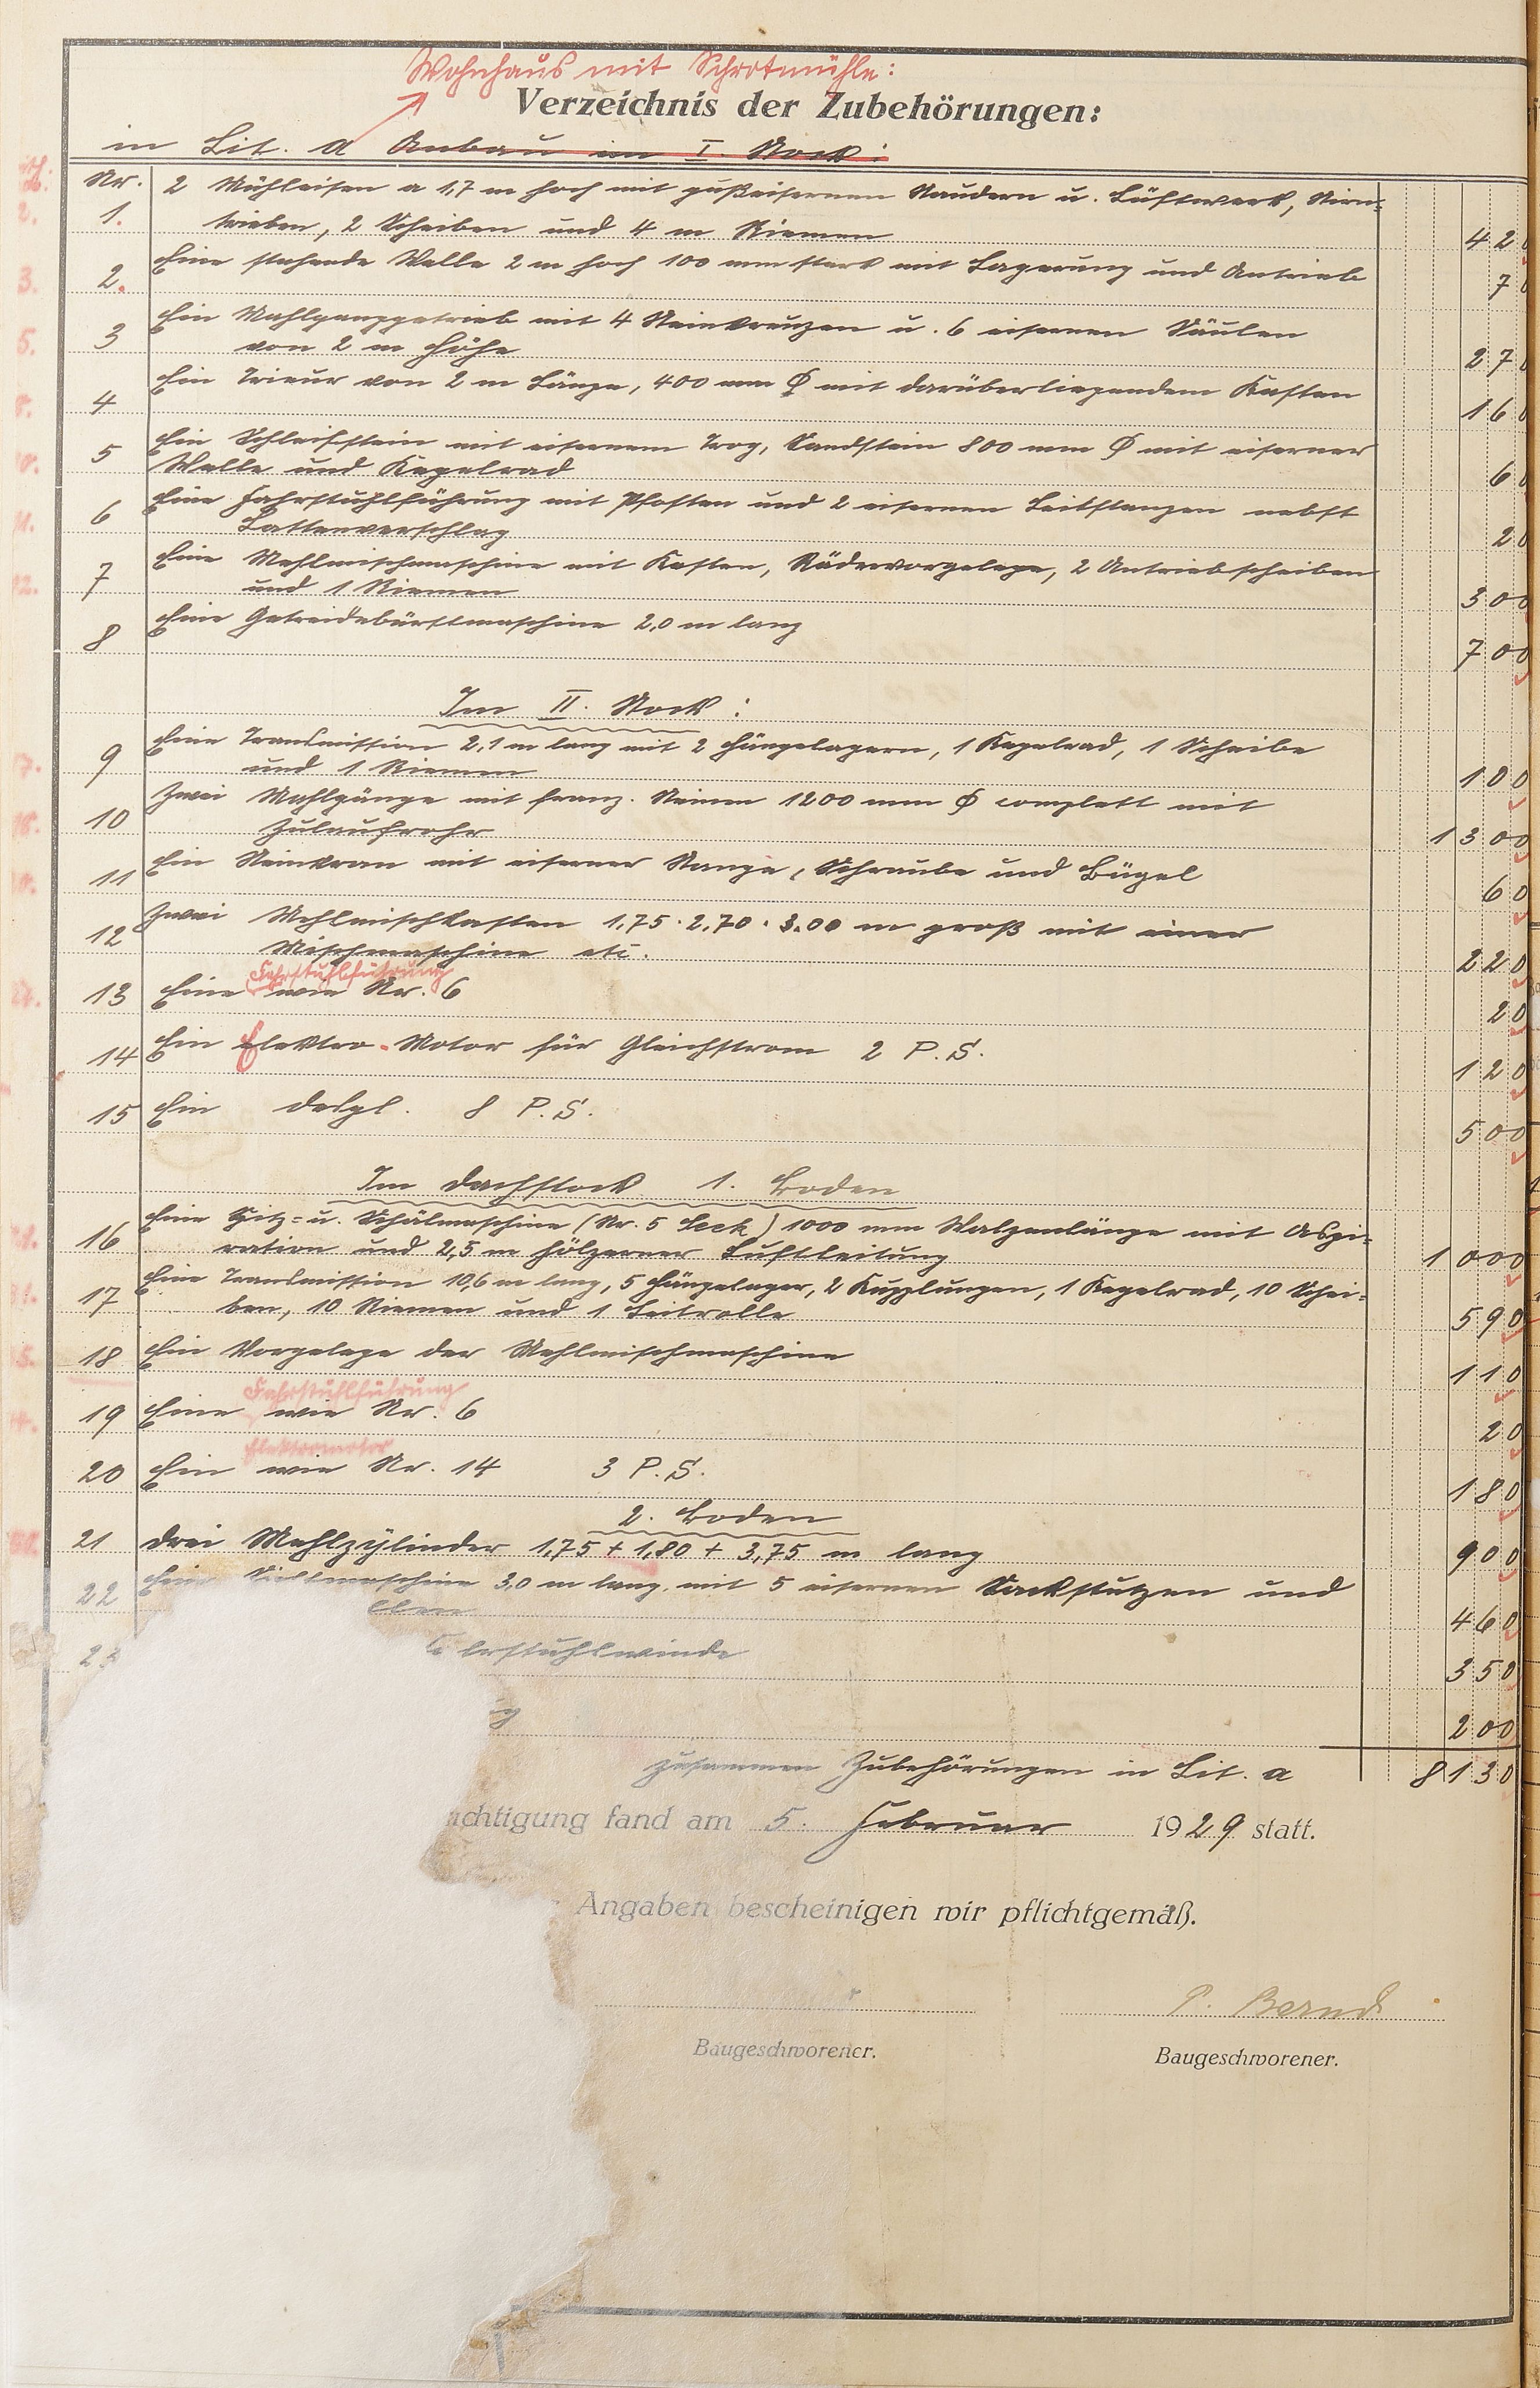 Wohnhaus mit Schrotmühle:
Verzeichnis der Zubehörungen:
in Lit. a Anbau im I. Stock:
Nr. 2 Mühleisen a 1,7 m hoch mit gußeisernen Staudern u. Lüftwerk, Stirn-
1. trieben, 2 Scheiben und 4 m Riemen 420
2. Eine stehende Welle 2 m hoch 100 mm stark mit Lagerung und Antrieb 70
3 Ein Mahlganggetrieb mit 4 Steinkreuzen u. 6 eisernen Säulen
von 2 m Höhe 270
4 Ein Trieur von 2 m Länge, 400 mm ϕ mit darüberliegendem Kasten 160
5 Ein Schleifstein mit eisernem Trog, Sandstein 800 mm ϕ mit eiserner
Welle und Kegelrad 60
6 Eine Fahrstuhlführung mit Pfosten und 2 eisernen Leitstangen nebst
Lattenverschlag 20
7 Eine Mehlmischmaschine mit Kasten, Rädervorgelege, 2 Antriebscheiben
und 1 Riemen 300
8 Eine Getreidebürstmaschine 2,0 m lang 700
Im II. Stock:
9 Eine Transmission 2,1 m lang mit 2 Hängelagern, 1 Kegelrad, 1 Scheibe
und 1 Riemen 100
10 Zwei Mahlgänge mit franz. Steinen 1200 mm ϕ complett mit
Zulaufrohr 1300
11 Ein Steinkran mit eiserner Stange, Schraube und Bügel 60
12 Zwei Mehlmischkasten 1,75 · 2,70 · 3,00 m groß mit einer
Mischmaschine etc. 220
Fahrstuhlführung
13 Eine wie Nr. 6 20
14 Ein Elektro-Motor für Gleichstrom 2 P.S. 120
15 Ein desgl. 8 P.S. 500
Im Dachstock 1. Boden
16 Eine Spitz- u. Schälmaschine (Nr. 5 Seck) 1000 mm Walzenlänge mit Aspi-
ration und 2,5 m hölzerner Luftleitung 1000
17 Eine Transmission 10,6 m lang, 5 Hängelager, 2 Kupplungen, 1 Kegelrad, 10 Schei-
ben, 10 Riemen und 1 Leitrolle 590
18 Ein Vorgelege der Mehlmischmaschine 110
Fahrstuhlführung
19 Eine wie Nr. 6 20
Elektromotor
20 Ein wie Nr. 14 3 P.S. 180
2. Boden
21 Drei Mehlzylinder 1,75 + 1,80 + 3,75 m lang 900
22 Eine Sichtmaschine 3,0 m lang, mit 5 eisernen Sackstutzen und
llen 460
23 hrstuhlwinde 350
g 200
zusammen Zubehörungen in Lit. a 8130
chtigung fand am 5. Februar 1929 statt.
Angaben bescheinigen wir pflichtgemäß.
P. Bernd
Baugeschworener. Baugeschworener.